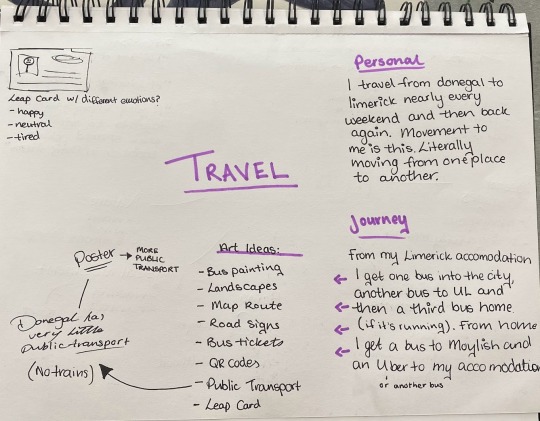 Leap Card w/ different emotions?
- happy
- neutral
- tired
TRAVEL
Personal
I travel from donegal to
limerick nearly every
weekend and then back
again. Movement to
me is this. Literally
moving from one place
to another.
Journey
From my Limerick accomodation
← I get one bus into the city,
another bus to UL and
← then a third bus home
← (if it's running). From home
← I get a bus to Moylish and
an Uber to my accomodation
or another bus
Art Ideas:
- Bus painting
- Landscapes
- Map Route
- Road Signs
- Bus tickets
- QR codes
- Public Transport
- Leap Card
Poster → MORE
PUBLIC
TRANSPORT
Donegal has
very little
public transport
(No trains)